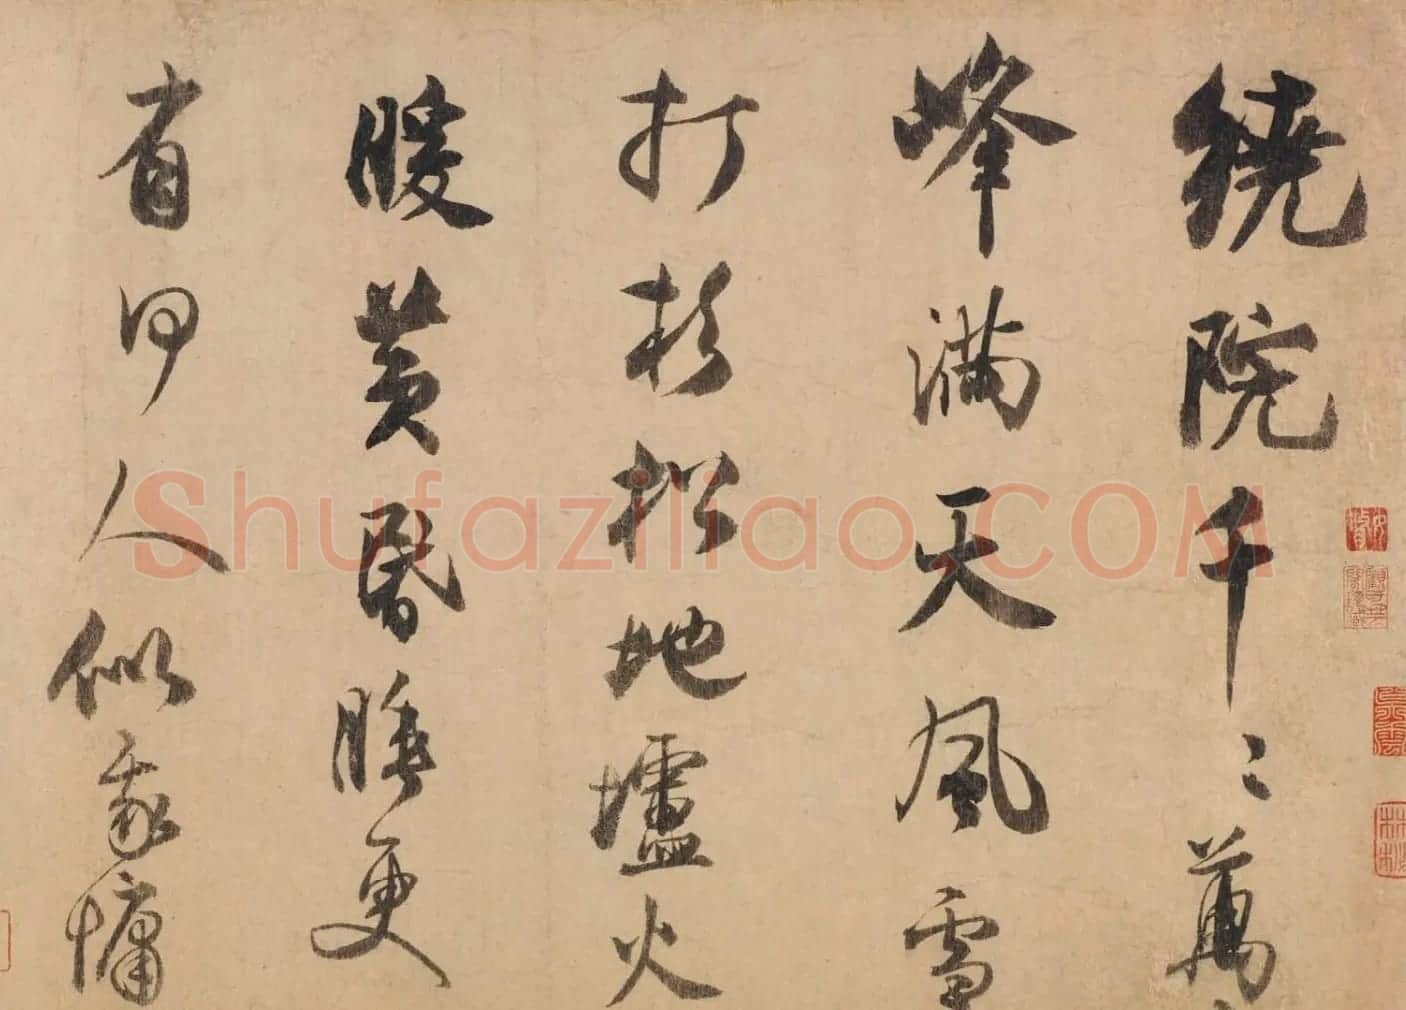 繞院千〻萬
峰滿天風雪
打杉松地壚火
暖黃昬睡更
有何人似我慵
Shufaziliao.COM